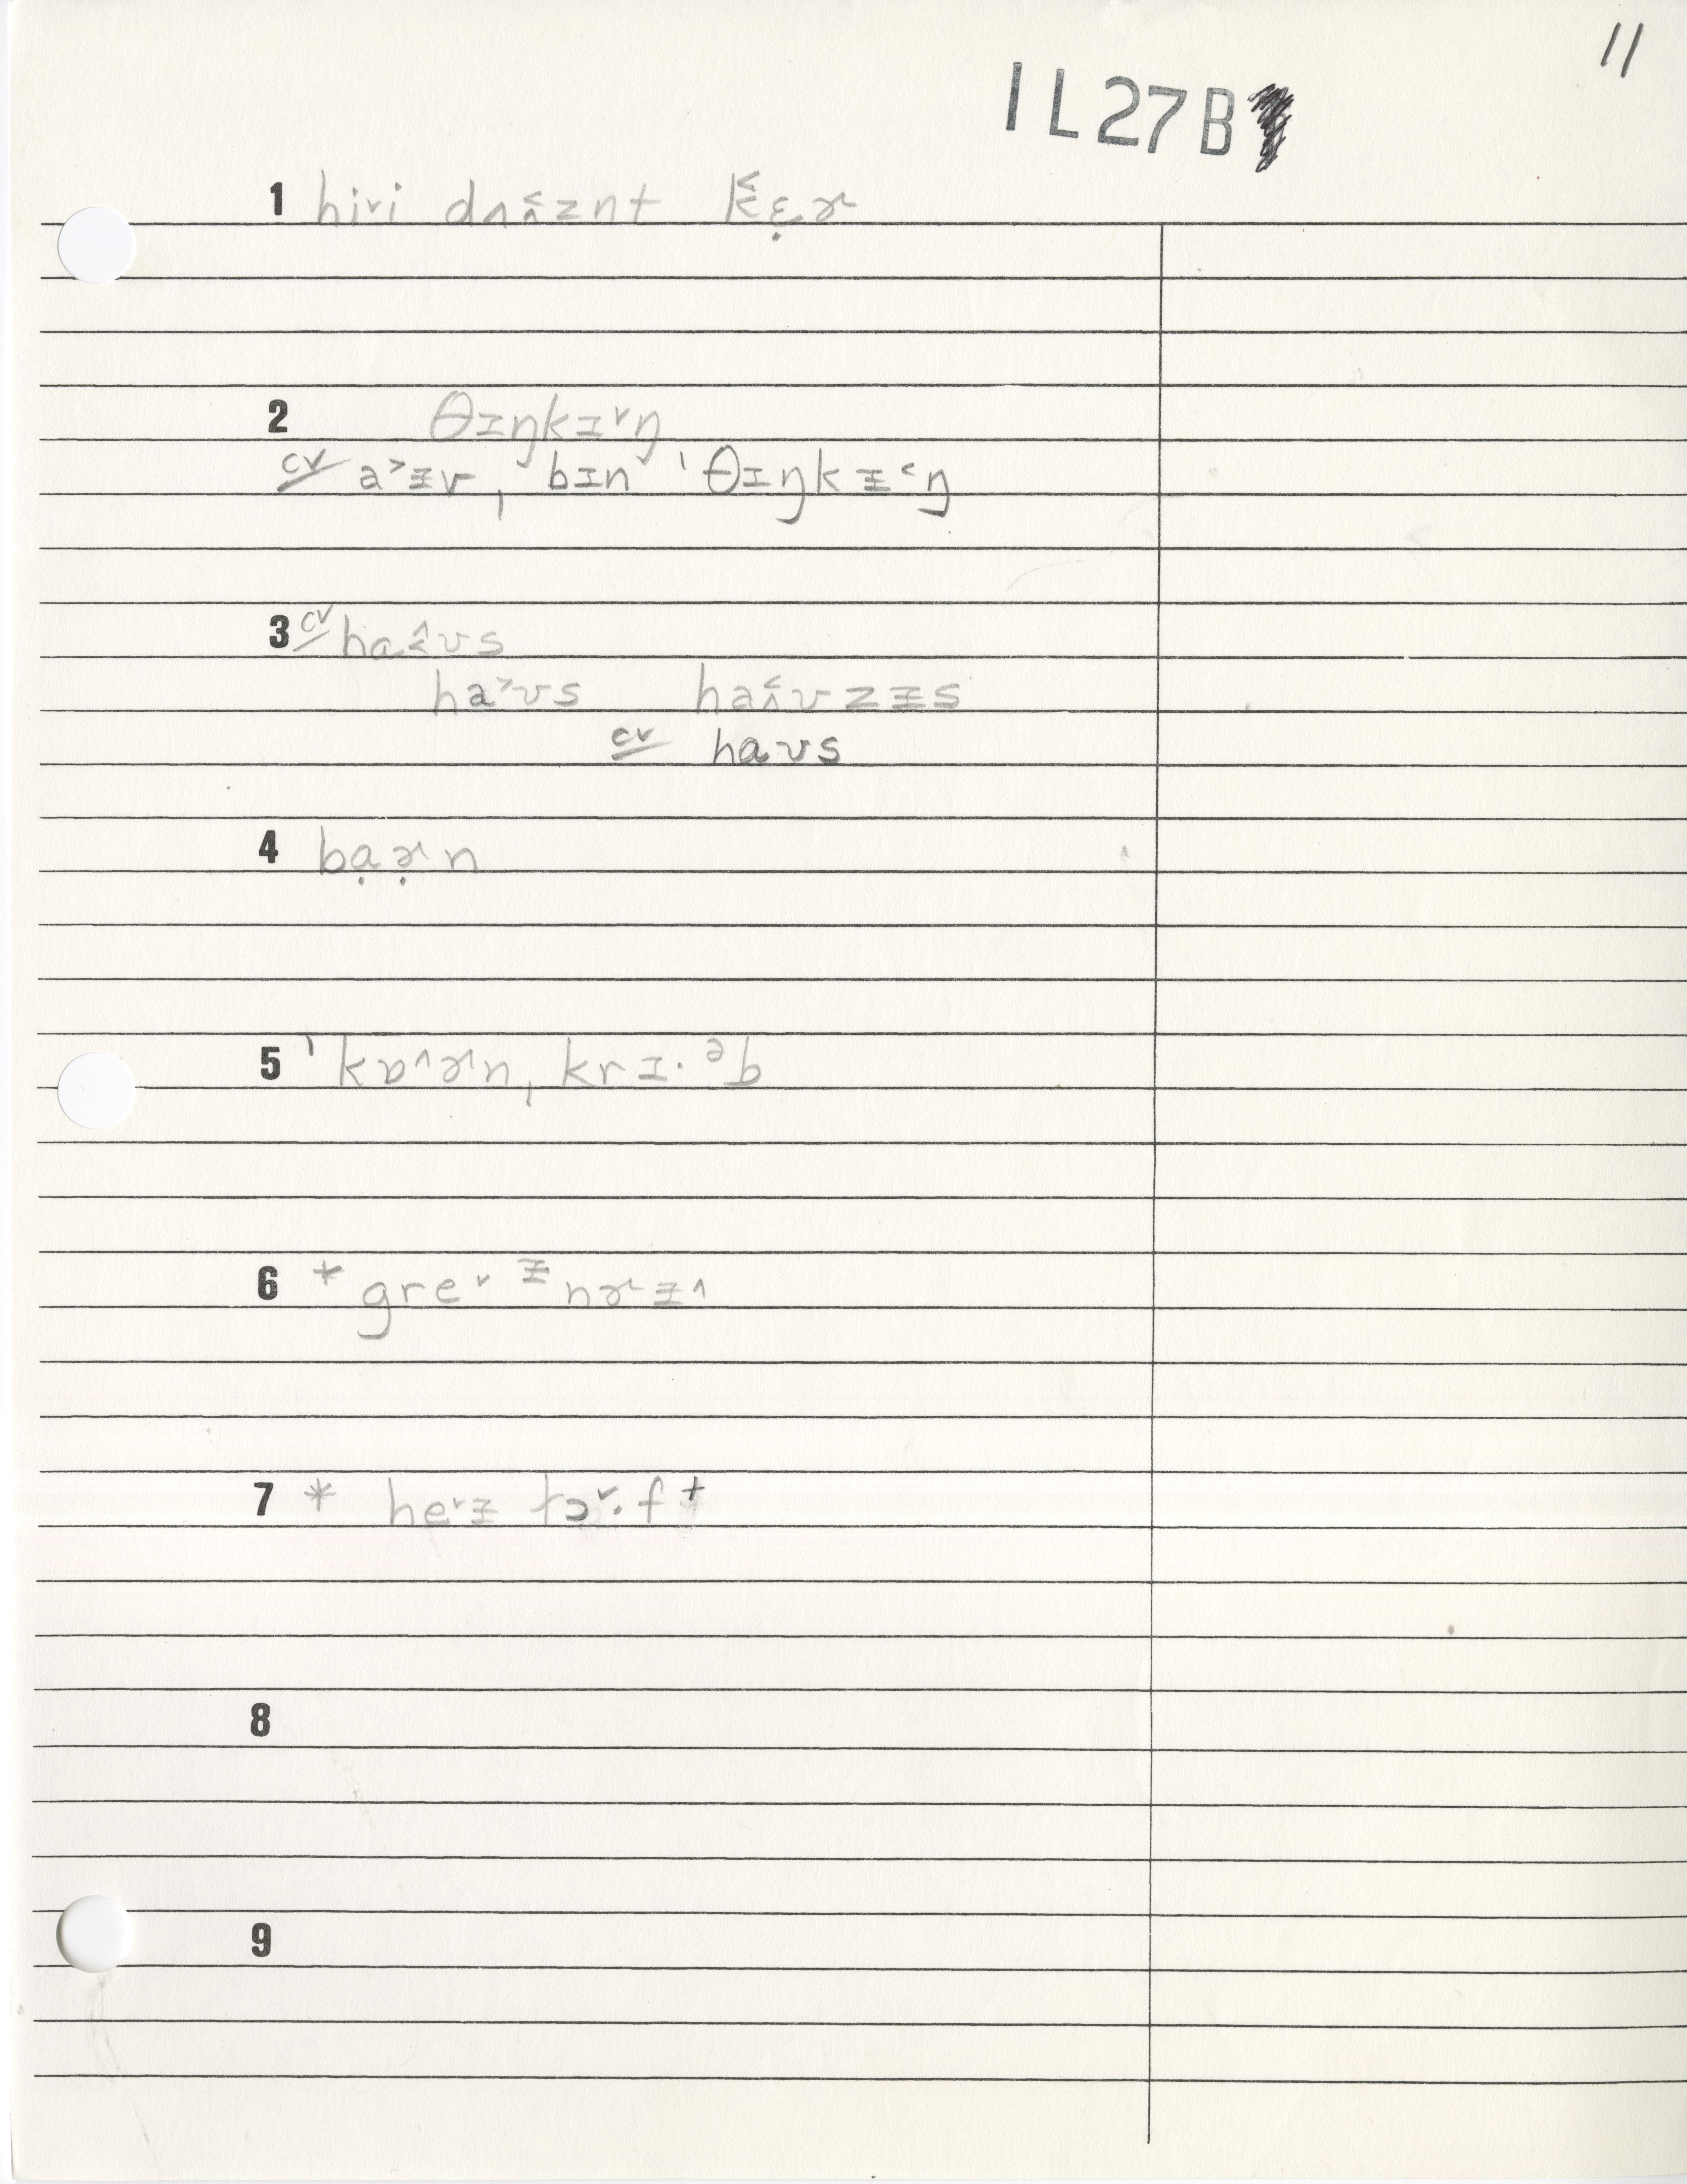 11
1L27B
1 hiᵛi dʌ˂̭znt k̬ɛ̣ɚ
2 θɪŋkɪᵛŋ
cv a˃ɨv, bɪn ˈθɪŋkɨ˂ŋ
3 cv ha˰̂ʊs
ha˃ʊs ha˂̭ʊzɨs
cv haʊs
4 bạɚ̣n
5 ˈkɒ^ɚn, krɪ·ᵊb
6 * greᵛ ᶤnɚɨ^
7 * heᵛɨ lɔᵛ·fᵗ
8
9